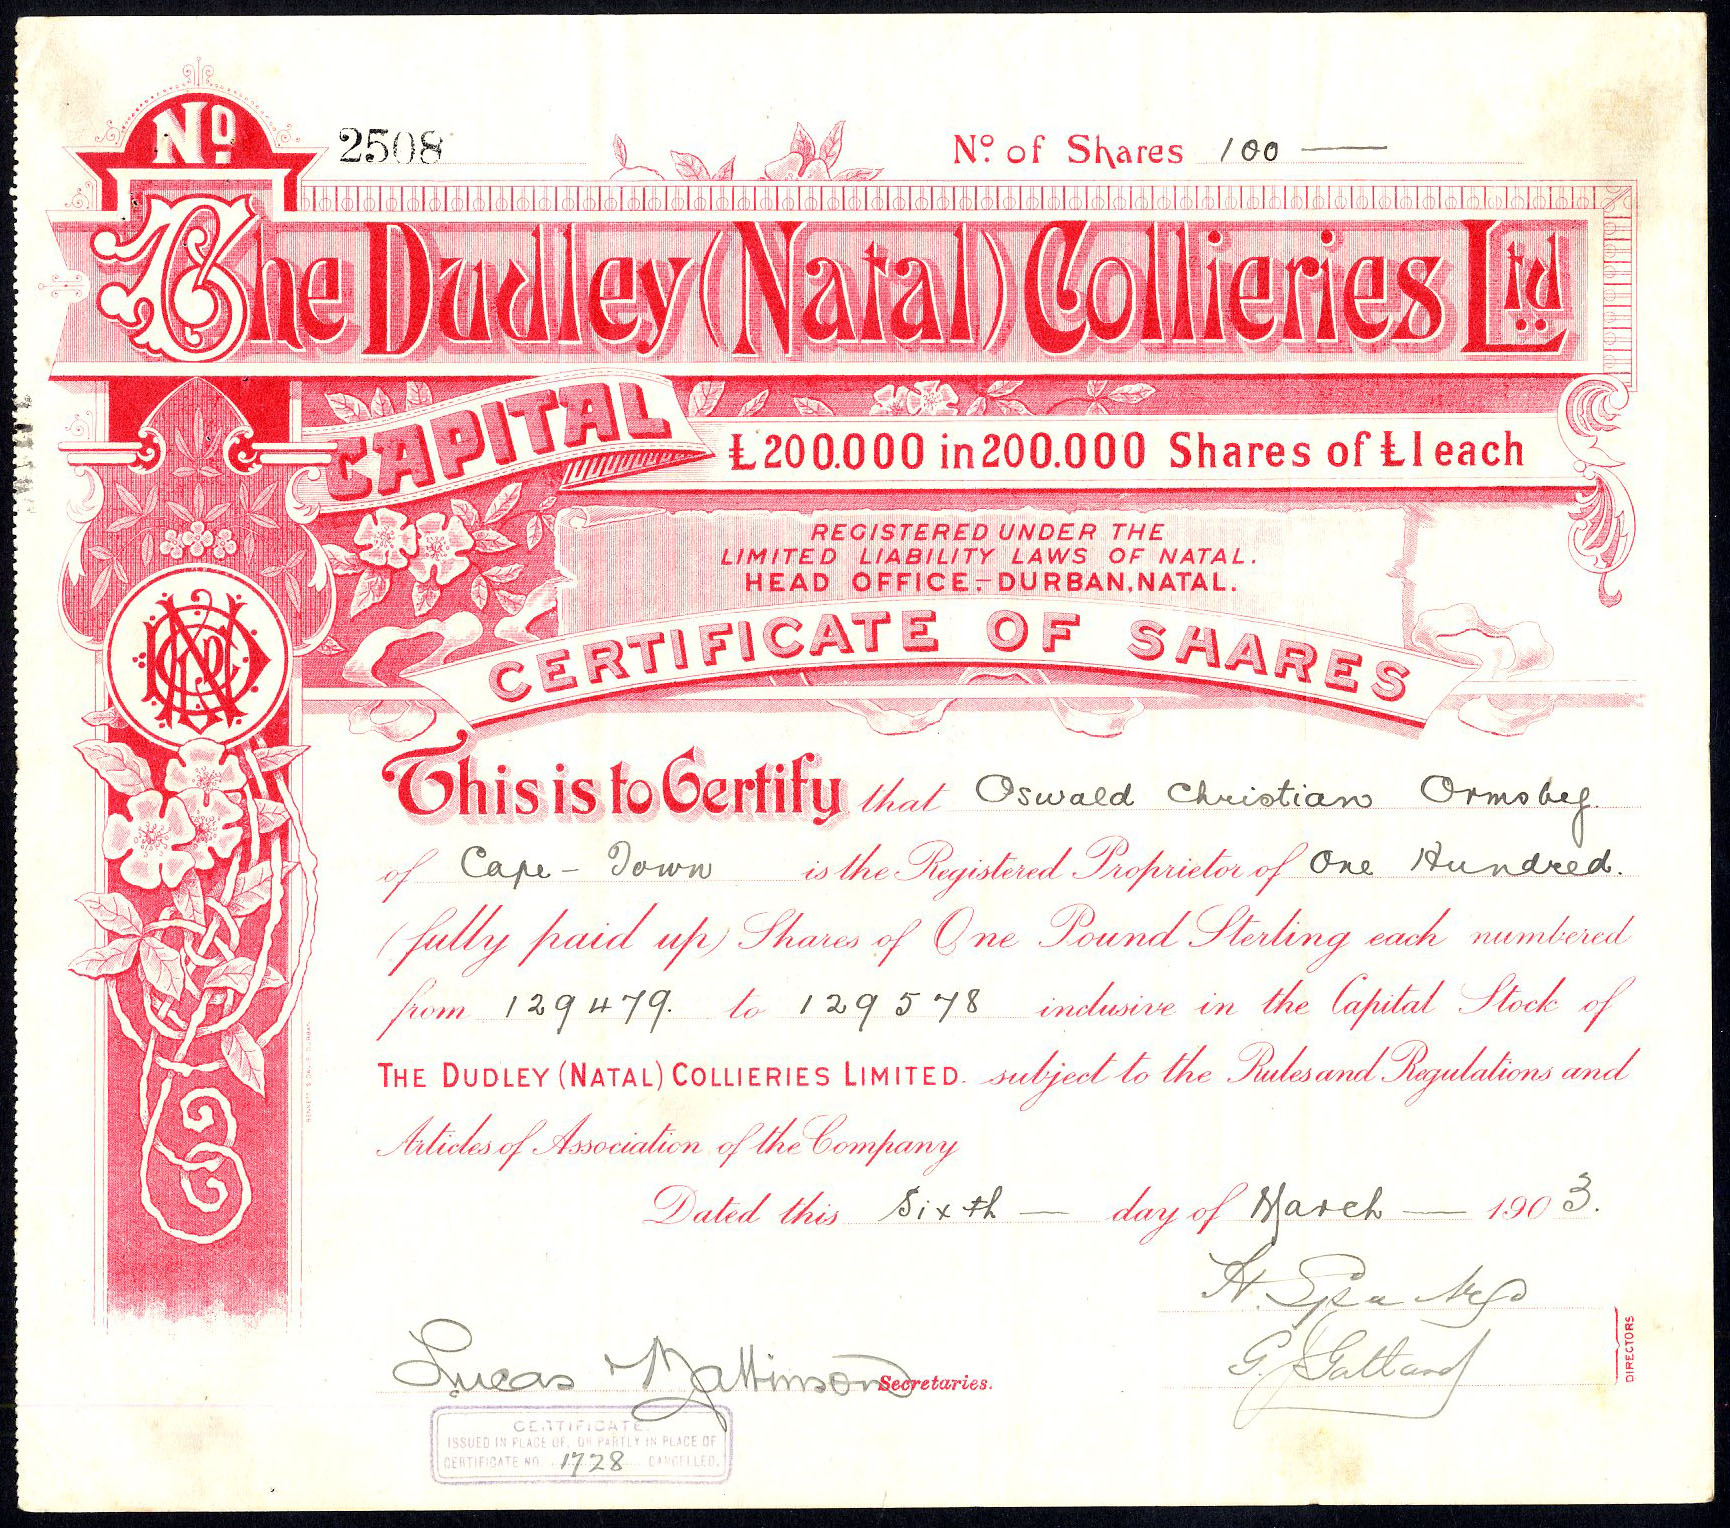 No. 2508
No. of Shares 100 —
The Dudley (Natal) Collieries Ltd
CAPITAL
£200.000 in 200.000 Shares of £1 each
REGISTERED UNDER THE
LIMITED LIABILITY LAWS OF NATAL.
HEAD OFFICE:- DURBAN, NATAL.
CERTIFICATE OF SHARES
This is to Certify that Oswald Christian Ormsby
of Cape-Town is the Registered Proprietor of One Hundred.
(fully paid up) Shares of One Pound Sterling each numbered
from 129479. to 129578 inclusive in the Capital Stock of
THE DUDLEY (NATAL) COLLIERIES LIMITED. subject to the Rules and Regulations and
Articles of Association of the Company
Dated this Sixth — day of March — 1903.
Lucas Mattinson Secretaries.
DIRECTORS
CERTIFICATE
ISSUED IN PLACE OF, OR PARTLY IN PLACE OF
CERTIFICATE NO. 1728 CANCELLED.